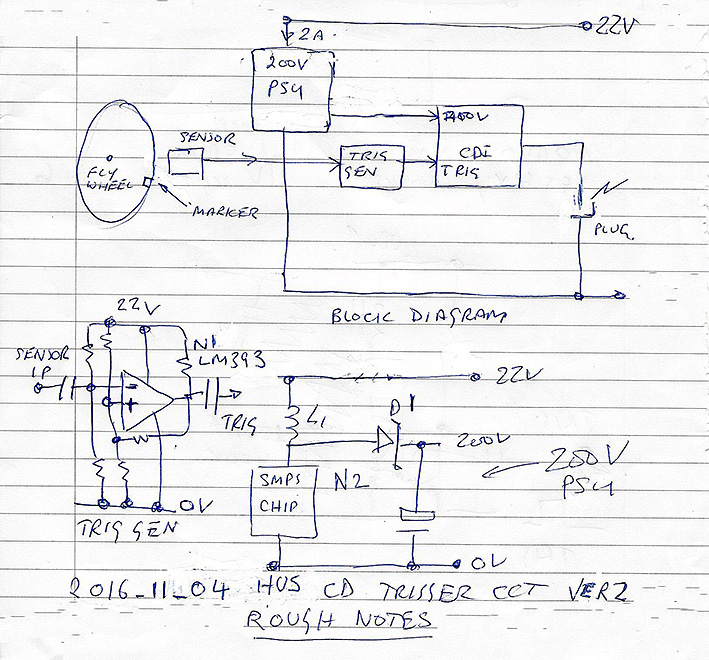 22V
2A
200V
PSU
SENSOR
FLY
WHEEL
MARKER
TRIG
GEN
200V
CDI
TRIG
PLUG
BLOCK DIAGRAM
22V
N1
LM393
SENSOR
IP
-
+
TRIG
0V
TRIG GEN
22V
L1
D1
200V
SMPS
CHIP
N2
200V
PSU
0V
2016-11-04 HVS CD TRIGGER CCT VER2
ROUGH NOTES